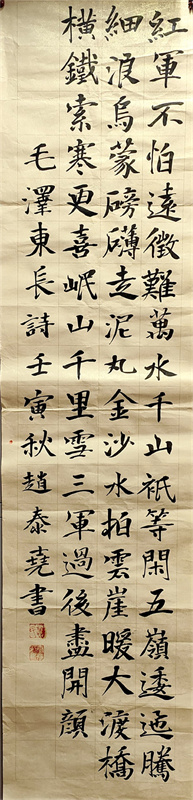 紅軍不怕遠徵難萬水千山衹等閑五嶺逶迤騰
細浪烏蒙磅礴走泥丸金沙水拍雲崖暖大渡橋
橫鐵索寒更喜岷山千里雪三軍過後盡開顔
毛澤東長詩壬寅秋趙泰堯書